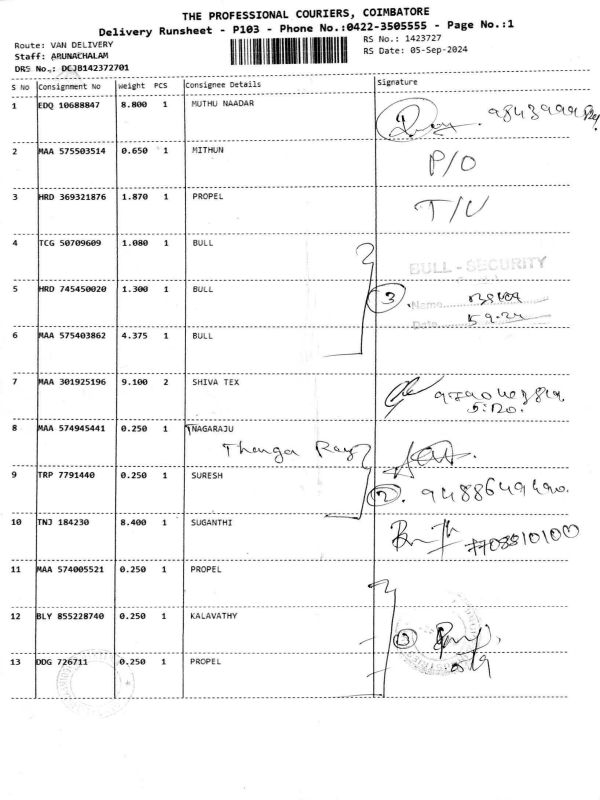 THE PROFESSIONAL COURIERS, COIMBATORE
Delivery Runsheet - P103 - Phone No.:0422-3505555 - Page No.:1
Route: VAN DELIVERY RS No.: 1423727
Staff: ARUNACHALAM RS Date: 05-Sep-2024
DRS No.: DCJB142372701
S No Consignment No Weight PCS Consignee Details Signature
1 EDQ 10688847 8.800 1 MUTHU NAADAR
2 MAA 575503514 0.650 1 MITHUN P/O
3 HRD 369321876 1.870 1 PROPEL T/U
4 TCG 50709609 1.080 1 BULL
BULL - SECURITY
5 HRD 745450020 1.300 1 BULL 3 Name
Date 5.9.24
6 MAA 575403862 4.375 1 BULL
7 MAA 301925196 9.100 2 SHIVA TEX
8 MAA 574945441 0.250 1 NAGARAJU
Thanga Raj
9 TRP 7791440 0.250 1 SURESH 2
10 TNJ 184230 8.400 1 SUGANTHI
11 MAA 574005521 0.250 1 PROPEL
12 BLY 855228740 0.250 1 KALAVATHY 3
13 DDG 726711 0.250 1 PROPEL